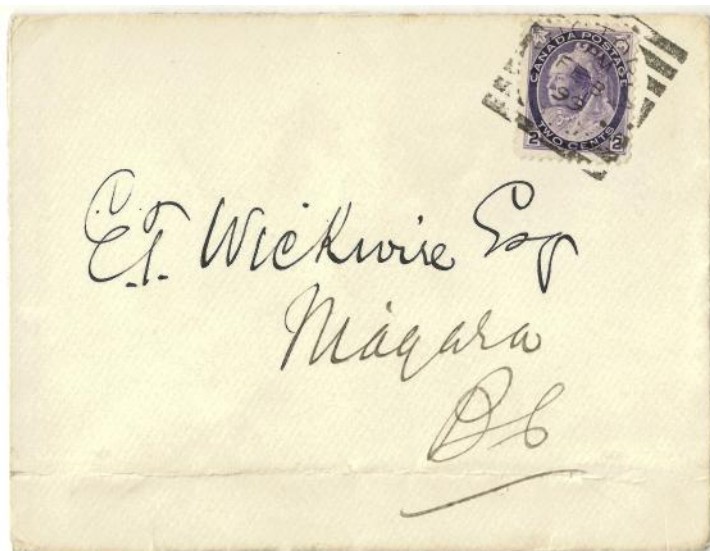 CANADA POSTAGE
2 TWO CENTS 2
E.T. Wickwire Esq
Niagara
BC